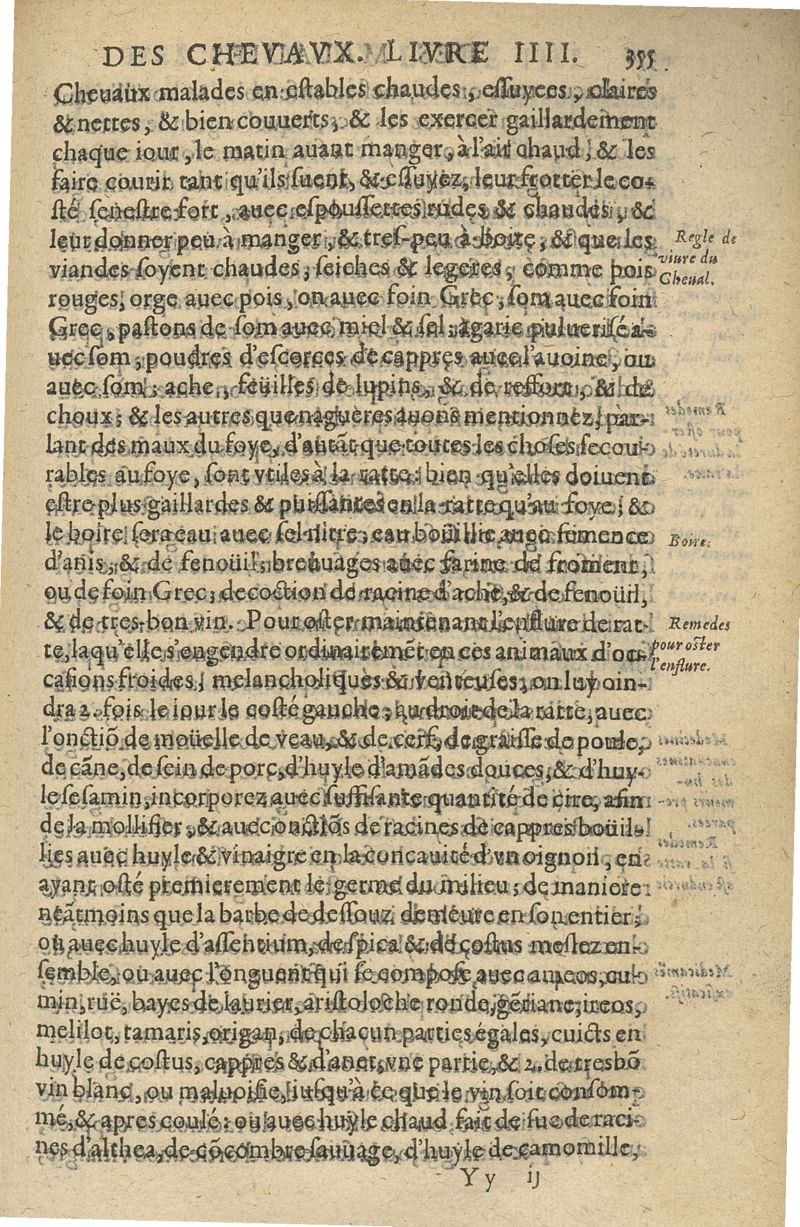 DES CHEVAVX. LIVRE IIII. 355
Cheuaux malades en estables chaudes, essuyees, claires
& nettes, & bien couuerts, & les exercer gaillardement
chaque iour, le matin auant manger, à l'air chaud, & les
faire courir tant qu'ils suent, & essuyez, leur frotter le co-
sté senestre fort, auec espoussettes rudes & chaudes, &
leur donner peu à manger, & tres-peu à boire, & que les
Regle de
viure du
Cheual.
viandes soyent chaudes, seiches & legeres, comme pois
rouges, orge auec pois, ou auec foin Grec, som auec foin
Grec, pastons de som auec miel & sel, agaric puluerisé a-
uec som, poudres d'escorces de cappres auec l'auoine, ou
auec som, ache, feuilles de lupins, & de reffort, & de
choux; & les autres que naguères auons mentionnez, par-
lant des maux du foye, d'autãt que toutes les choses secou-
rables au foye, sont vtiles à la ratte: bien qu'elles doiuent
estre plus gaillardes & puissantes en la ratte qu'au foye; &
le boire sera eau auec sel nitre, eau boüillie auec semence
Boire.
d'anis, & de fenoüil, breuuages auec farine de froment,
ou de foin Grec; decoction de racine d'ache, & de fenoüil,
& de tres-bon vin. Pour oster maintenant l'enflure de rat-
Remedes
pour oster
l'enflure.
te, laqu'elle s'engendre ordinairemẽt en ces animaux d'oc-
casions froides, melancholiques & venteuses; on luy oin-
dra 2. fois le iour le costé gauche, au droit de la ratte, auec
l'onctiõ de moüelle de veau, & de cerf, de graisse de poule,
de cãne, de sein de porc, d'huyle d'amãdes douces, & d'huy-
le sesamin, incorporez auec suffisante quantité de cire, afin
de la mollifier, & auec onctiõs de racines de cappres boüil-
lies auec huyle & vinaigre en la concauité d'vn oignon, en
ayant osté premierement le germe du milieu; de maniere
neãtmoins que la barbe de dessouz demeure en son entier;
ou auec huyle d'assentium, de spica & de costus meslez en-
semble, ou auec l'onguent qui se compose auec ameos, cu-
min, ruë, bayes de laurier, aristoloche ronde, gẽtiane, ireos,
melilot, tamaris, origan, de chacun parties égales, cuicts en
huyle de costus, cappres & d'anet, vne partie, & 2. de tres bõ
vin blanc, ou maluoisie, iusqu'à ce que le vin soit consom-
mé, & apres coulé: ou auec huyle chaud fait de suc de raci-
nes d'althea, de cõcombre sauuage, d'huyle de camomille,
Y y ij